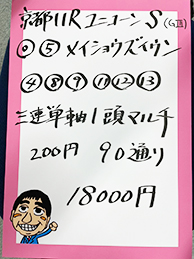 京都11R ユニコーンS(GⅢ)
◎⑤メイショウズイウン
④⑧⑨⑪⑫⑬
三連単軸1頭マルチ
200円 90通り
18000円